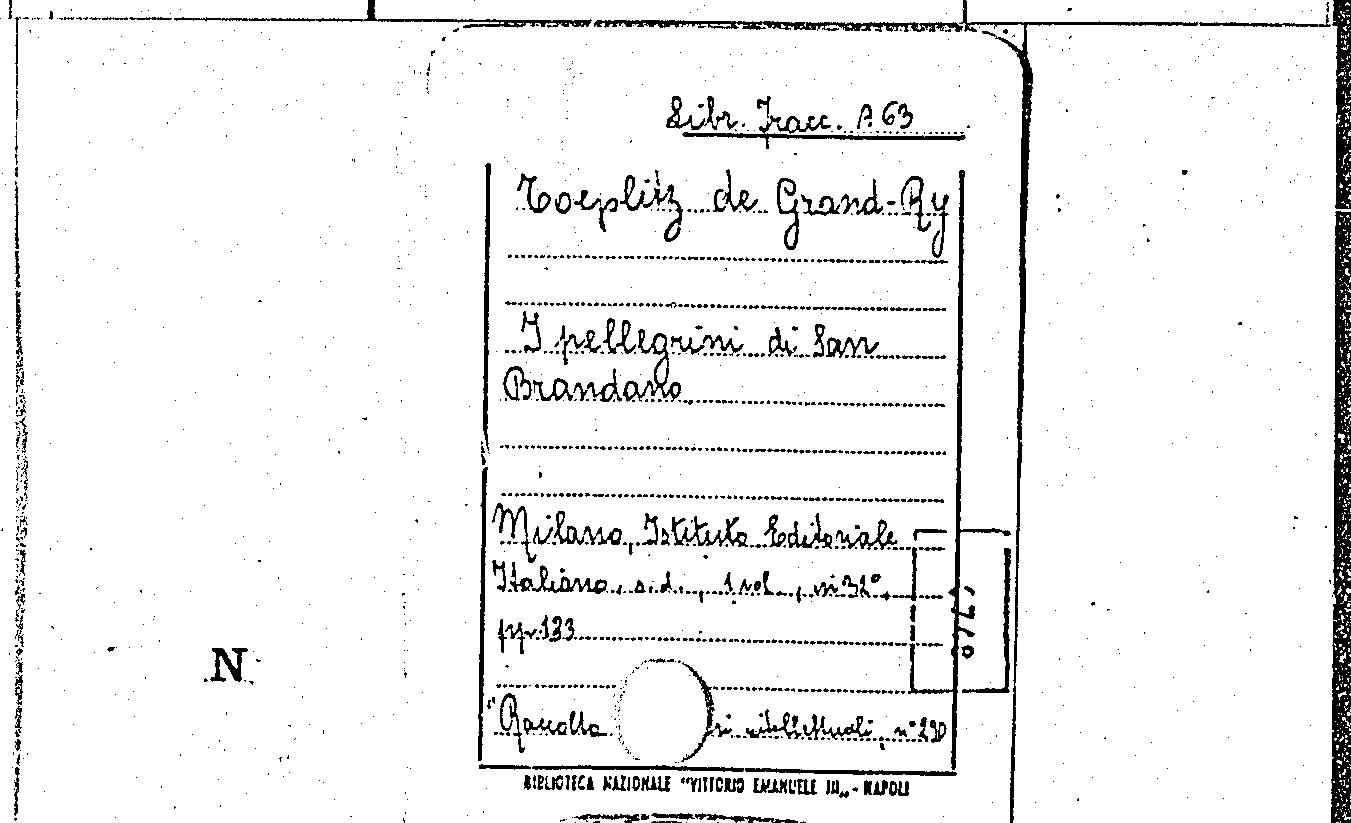 Libr. Tracc. A 63
Toeplitz de Grand-Ry
I pellegrini di San
Brandano
Milano, Istituto Editoriale
Italiano, s.d., 1 vol., in 32°,
pp. 133
N
"Raccolta intellettuali, n° 290
BIBLIOTECA NAZIONALE "VITTORIO EMANUELE III„ - NAPOLI